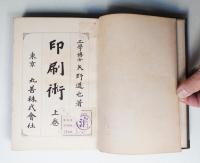 工學博士矢野道也著
印刷術
上卷
東京 丸善株式會社